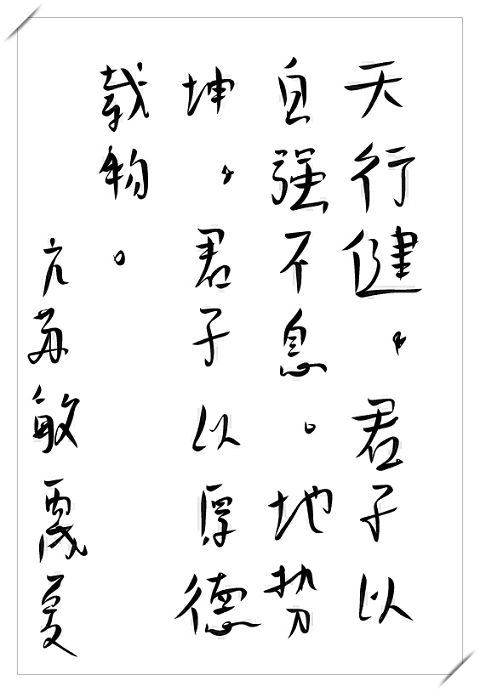 天行健，君子以
自强不息。地势
坤，君子以厚德
载物。
亢苏敏
夏